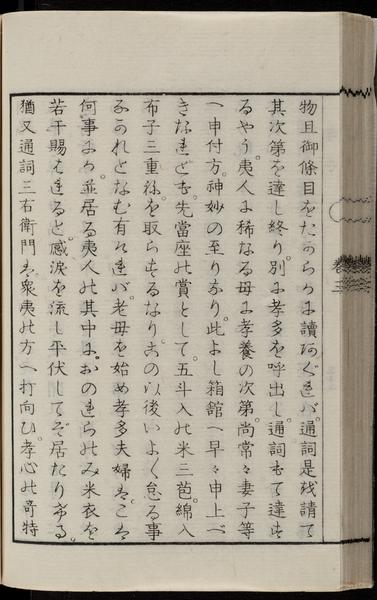 物且御條目をたからかに讀あぐれバ通詞是を請て
其次第を達し終り別に孝多を呼出し通詞もて達す
るやう夷人に稀なる母に孝養の次第尚常々妻子等
へ申付方神妙の至りなり此よし箱館へ早々申上べ
きなれども先當座の賞として五斗入の米三苞綿入
布子三重ねを取らするなりこの以後いよく怠る事
なかれとなむ有れバ老母を始め孝多夫婦はこは
何事にか並居る夷人の其中におのれらのみ米衣を
若干賜はれると感涙を流し平伏してぞ居たりける
猶又通詞三右衛門は衆夷の方へ打向ひ孝心の奇特
卷三